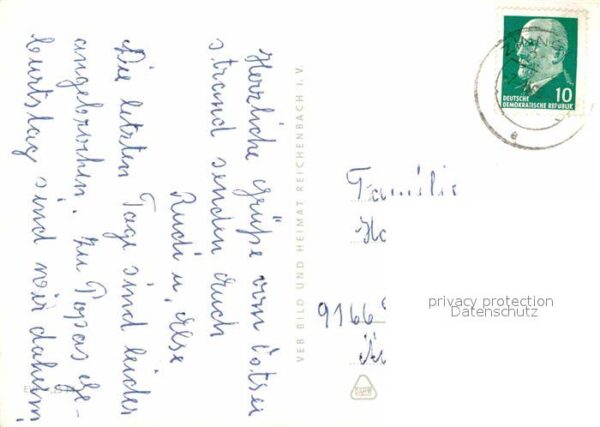 Herzliche Grüße vom Ostsee
strand senden Euch
Rudi u. Ilse
Die letzten Tage sind leider
angebrochen. Zu Popas Ge-
burtstag sind wir daheim!
VEB BILD UND HEIMAT REICHENBACH I. V.
10
DEUTSCHE
DEMOKRATISCHE REPUBLIK
Familie
9166
privacy protection
Datenschutz